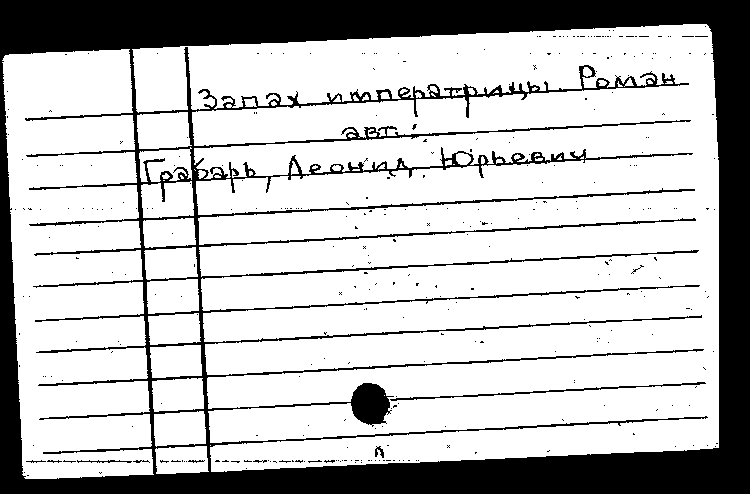 Запах императрицы. Роман
авт.:
Грабарь, Леонид Юрьевич